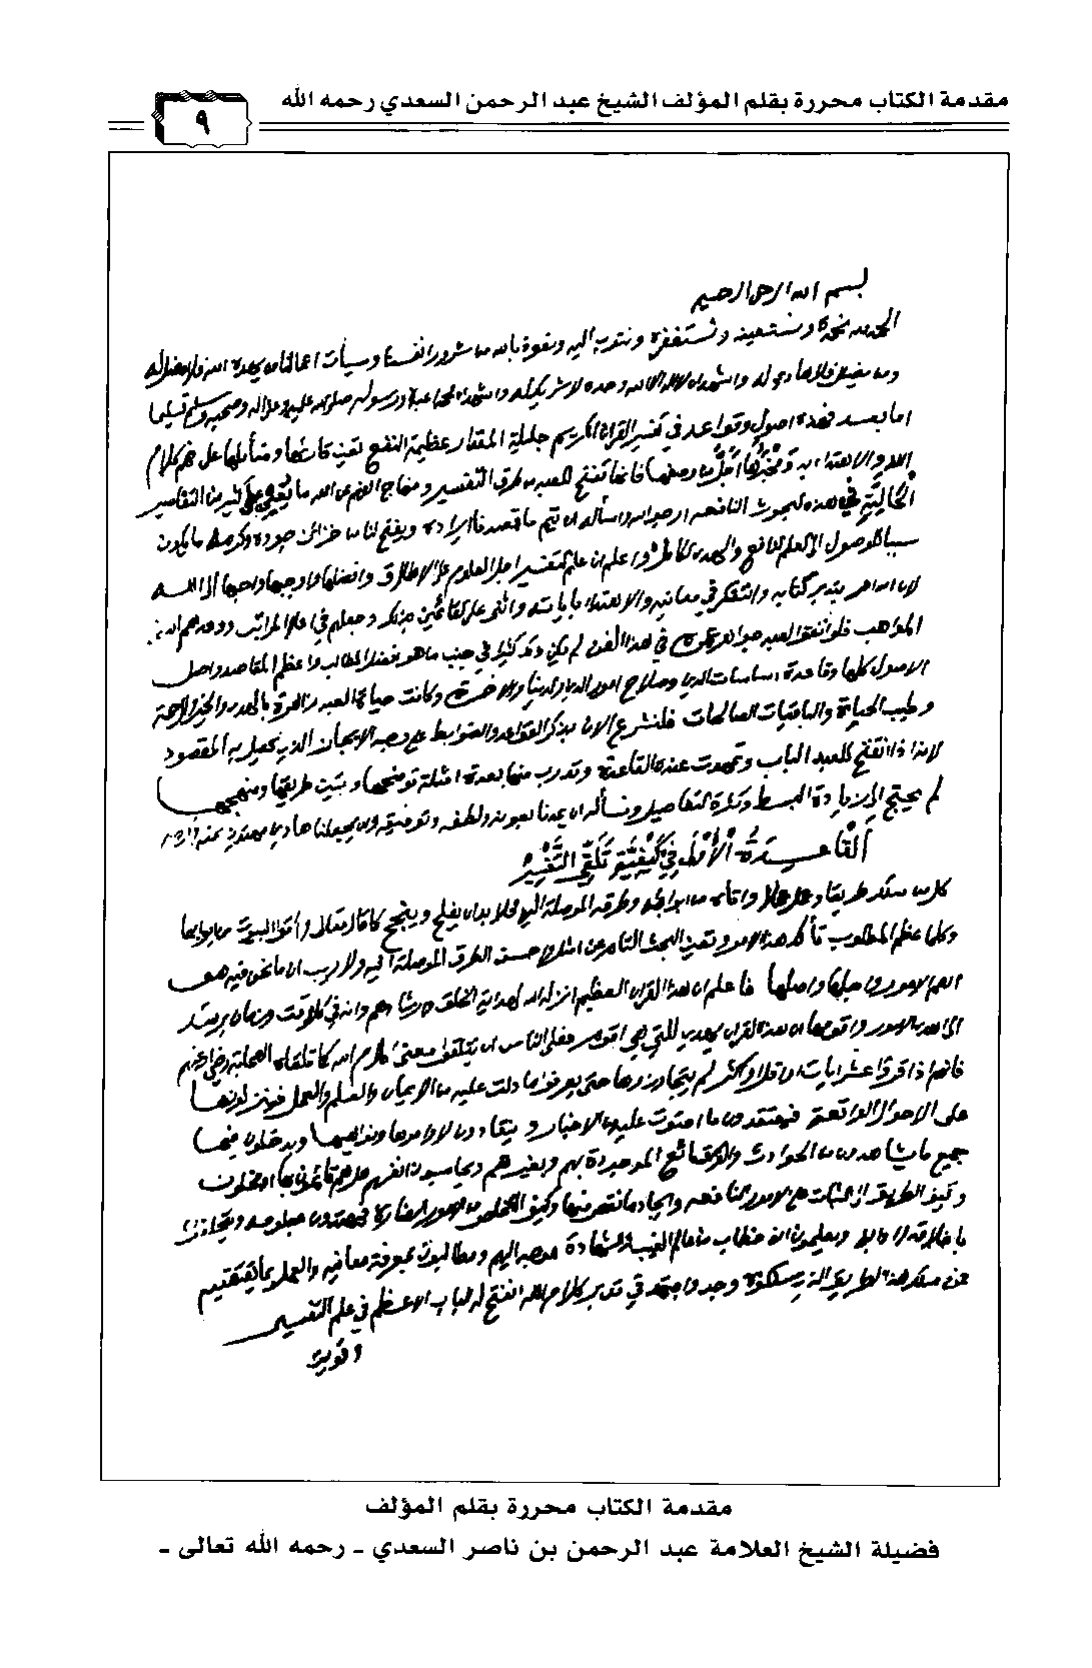 مقدمة الكتاب محررة بقلم المؤلف الشيخ عبد الرحمن السعدي رحمه الله
٩
بسم الله الرحمن الرحيم
الحمد لله نحمده ونستعينه ونستغفره ونتوب اليه ونعوذ بالله من شرور انفسنا وسيأت اعمالنا من يهده الله فلا مضل له
ومن يضلل فلا هادي له واشهد ان لا اله الا الله وحده لا شريك له واشهد ان محمدا عبده ورسوله صلى الله عليه وعلى اله وصحبه وسلم تسليما
اما بعد فهذه اصول وقواعد في تفسير القران الكريم جليلة المقدار عظيمة النفع تعين قارئها ومتأملها على فهم كلام
الله والاهتداء به ومخبرها أجل من وصفها فانها تفتح للعبد من طرق التفسير ومنهاج الفهم عن الله ما يغني عن كثير من التفاسير
الخالية في هذه البحوث النافعه ارجو الله واسأله ان يتم ما قصدنا ايراده ويفتح لنا من خزائن جوده وكرمه ما يكون
سببا للوصول الى العلم النافع والهدى الكامل واعلم ان علم التفسير اجل العلوم على الاطلاق وافضلها واوجبها واحبها الى الله
لان الله امر بتدبر كتابه والتفكر في معانيه والاهتداء بأياته واثنى على القائمين بذلك وجعلهم في اعلا المراتب ووعدهم اسنى
المواهب فلو انفق العبد جواهر عمره في هذا الفن لم يكن ذلك كثيرا في جنب ما هو افضل المطالب واعظم المقاصد واصل
الاصول كلها وقاعدة اساسات الدين وصلاح امور الدين والدنيا والاخرة وكانت حياة العبد زاهرة بالهدى والخير والرحمة
وطيب الحياة والباقيات الصالحات فلنشرع الان بذكر القواعد والضوابط على وجه الايجاز الذي يحصل به المقصود
لانه اذا انفتح للعبد الباب وتمهدت عنده القاعدة وتدرب منها بعدة امثلة توضحها وتبين طريقها ومنهجها
لم يحتج الى زيادة البسط وكثرة التفاصيل ونسأله ان يمدنا بعونه ولطفه وتوفيقه وان يجعلنا هادين مهتدين بمنه
القاعدة الأولى في كيفية تلقي التفسير
كل من سلك طريقا وعمل عملا واتاه من ابوابه وطرقه الموصلة اليه فلا بد ان يفلح وينجح كما قال تعالى وأتوا البيوت من ابوابها
وكلما عظم المطلوب تأكد هذا الامر وتعين البحث التام عن امثل واحسن الطرق الموصلة اليه ولا ريب ان ما نحن فيه هو
اهم الامور واجلها واصلها فاعلم ان هذا القران العظيم انزله الله لهداية الخلق وارشادهم وانه في كل وقت وزمان يرشد
الى اهدى الامور واقومها ان هذا القران يهدي للتي هي اقوم فعلى الناس ان يتلقوا معنى كلام الله كما تلقاه الصحابة رضي الله عنهم
فانهم اذا قرؤا عشر ايات او اقل او اكثر لم يتجاوزوها حتى يعرفوا ما دلت عليه من الايمان والعلم والعمل فينزلونها
على الاحوال الواقعة فيعتقدون ما احتوت عليه من الاخبار وينقادون لاوامرها ونواهيها ويدخلون فيها
جميع ما يشاهدون من الحوادث والوقائع الموجودة بهم وبغيرهم ويحاسبون انفسهم هل هم قائمون بها او مخلون
وكيف الطريق الى الثبات على الامور النافعه وايجاد ما نقص منها وكيف التخلص من الامور الضارة فيهتدون بعلومه ويتخلقون
باخلاقه وادابه ويعلمون انه خطاب من عالم الغيب والشهادة موجه اليهم ومطالبون بمعرفة معانيه والعمل بما يقتضيه
فمن سلك هذا الطريق الذي سلكوه وجد واجتهد في تدبر كلام الله انفتح له الباب الاعظم في علم التفسير
وقويت
مقدمة الكتاب محررة بقلم المؤلف
فضيلة الشيخ العلامة عبد الرحمن بن ناصر السعدي ـ رحمه الله تعالى ـ